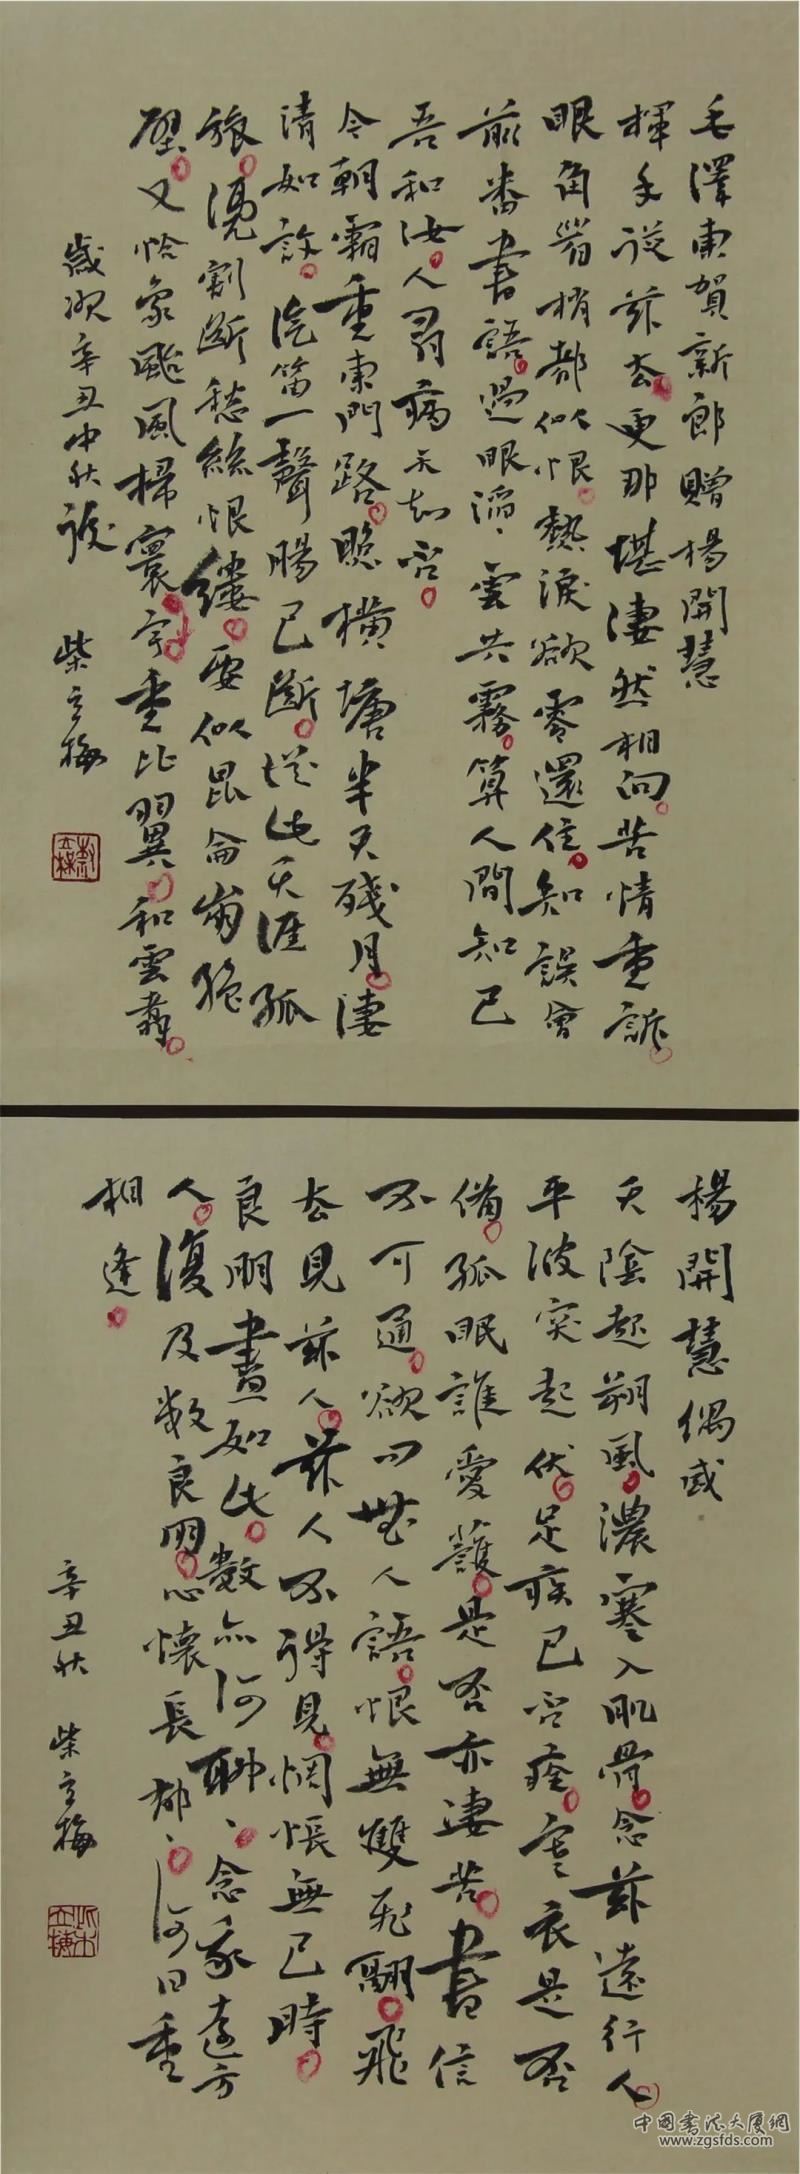 毛澤東賀新郎贈楊開慧
揮手從茲去更那堪淒然相向苦情重訴
眼角眉梢都似恨熱淚欲零還住知誤會
前番書語過眼滔、雲共霧算人間知己
吾和汝人有病天知否
今朝霜重東門路照橫塘半天殘月淒
清如許汽笛一聲腸已斷從此天涯孤
旅憑割斷愁絲恨縷要似昆侖崩絕
壁又恰象颱風掃寰宇重比翼和雲翥
歲次辛丑中秋後 柴立梅
楊開慧偶感
天陰起朔風濃寒入肌骨念茲遠行人
平波突起伏足疾已否痊寒衣是否
備孤眠誰愛護是否亦淒苦書信
不可通欲問無人語恨無雙飛翮飛
去見茲人茲人不得見惆悵無已時
良朋盡如此數亦何聊、念我遠方
人復及數良朋心懷長郁、何日重
相逢
辛丑秋 柴立梅
中國書法大廈網
www.zgsfds.com